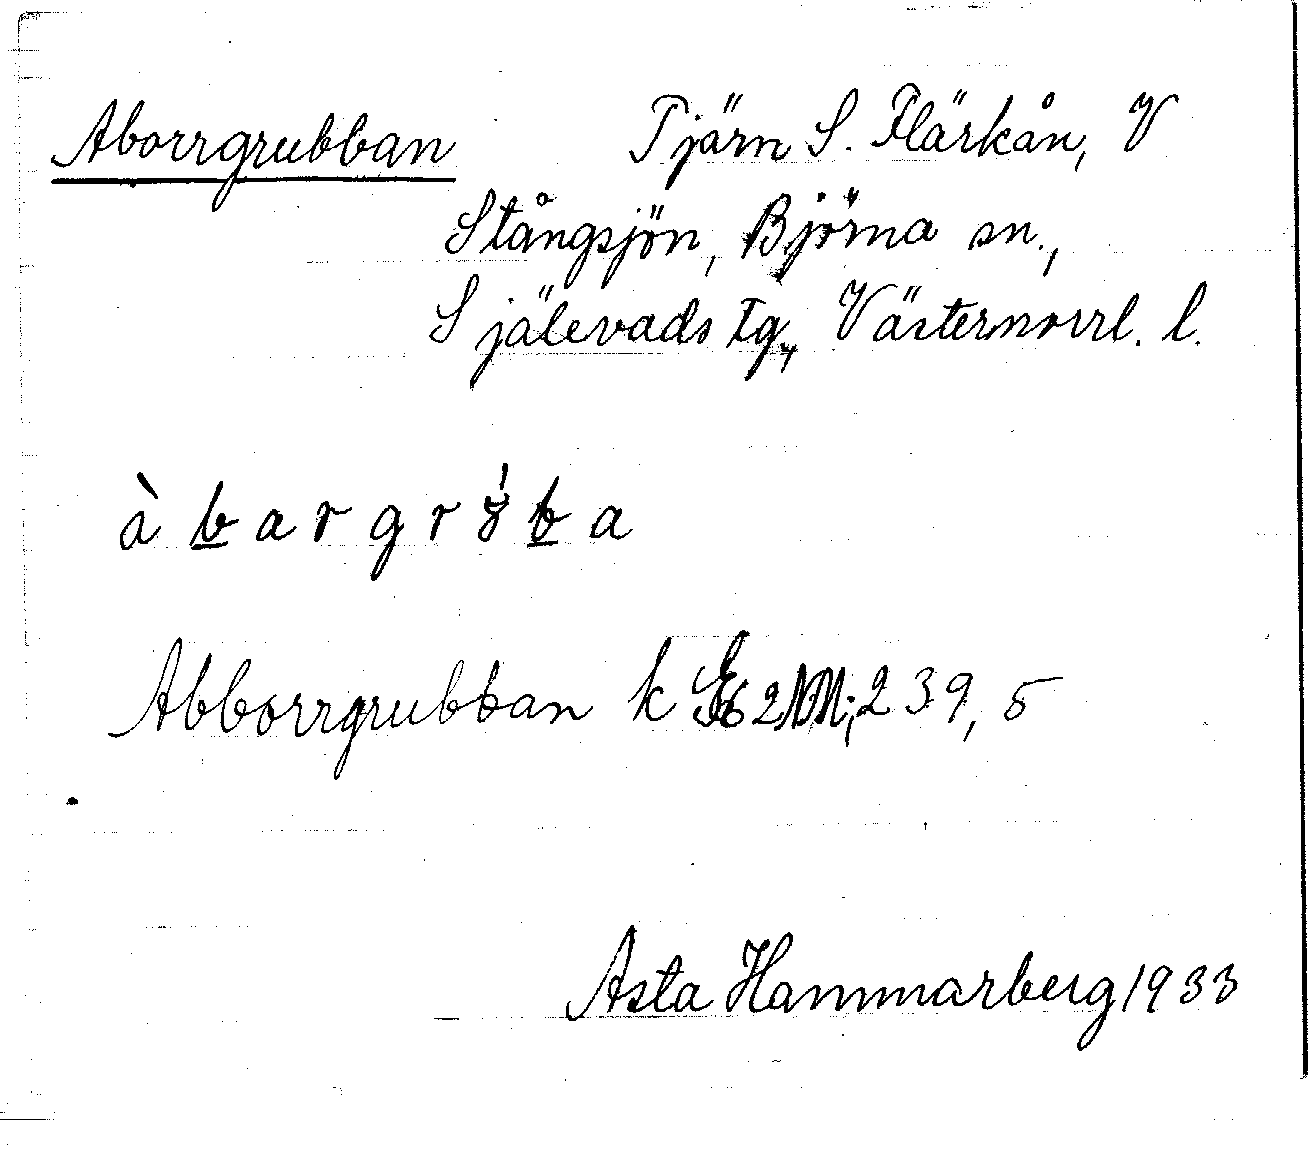 Aborrgrubban Tjärn S. Flärkån, V
Stångsjön, Björna sn.,
Själevads tg., Västernorrl. l.
Abborrgrubban k 239,5
Asta Hammarberg 1933